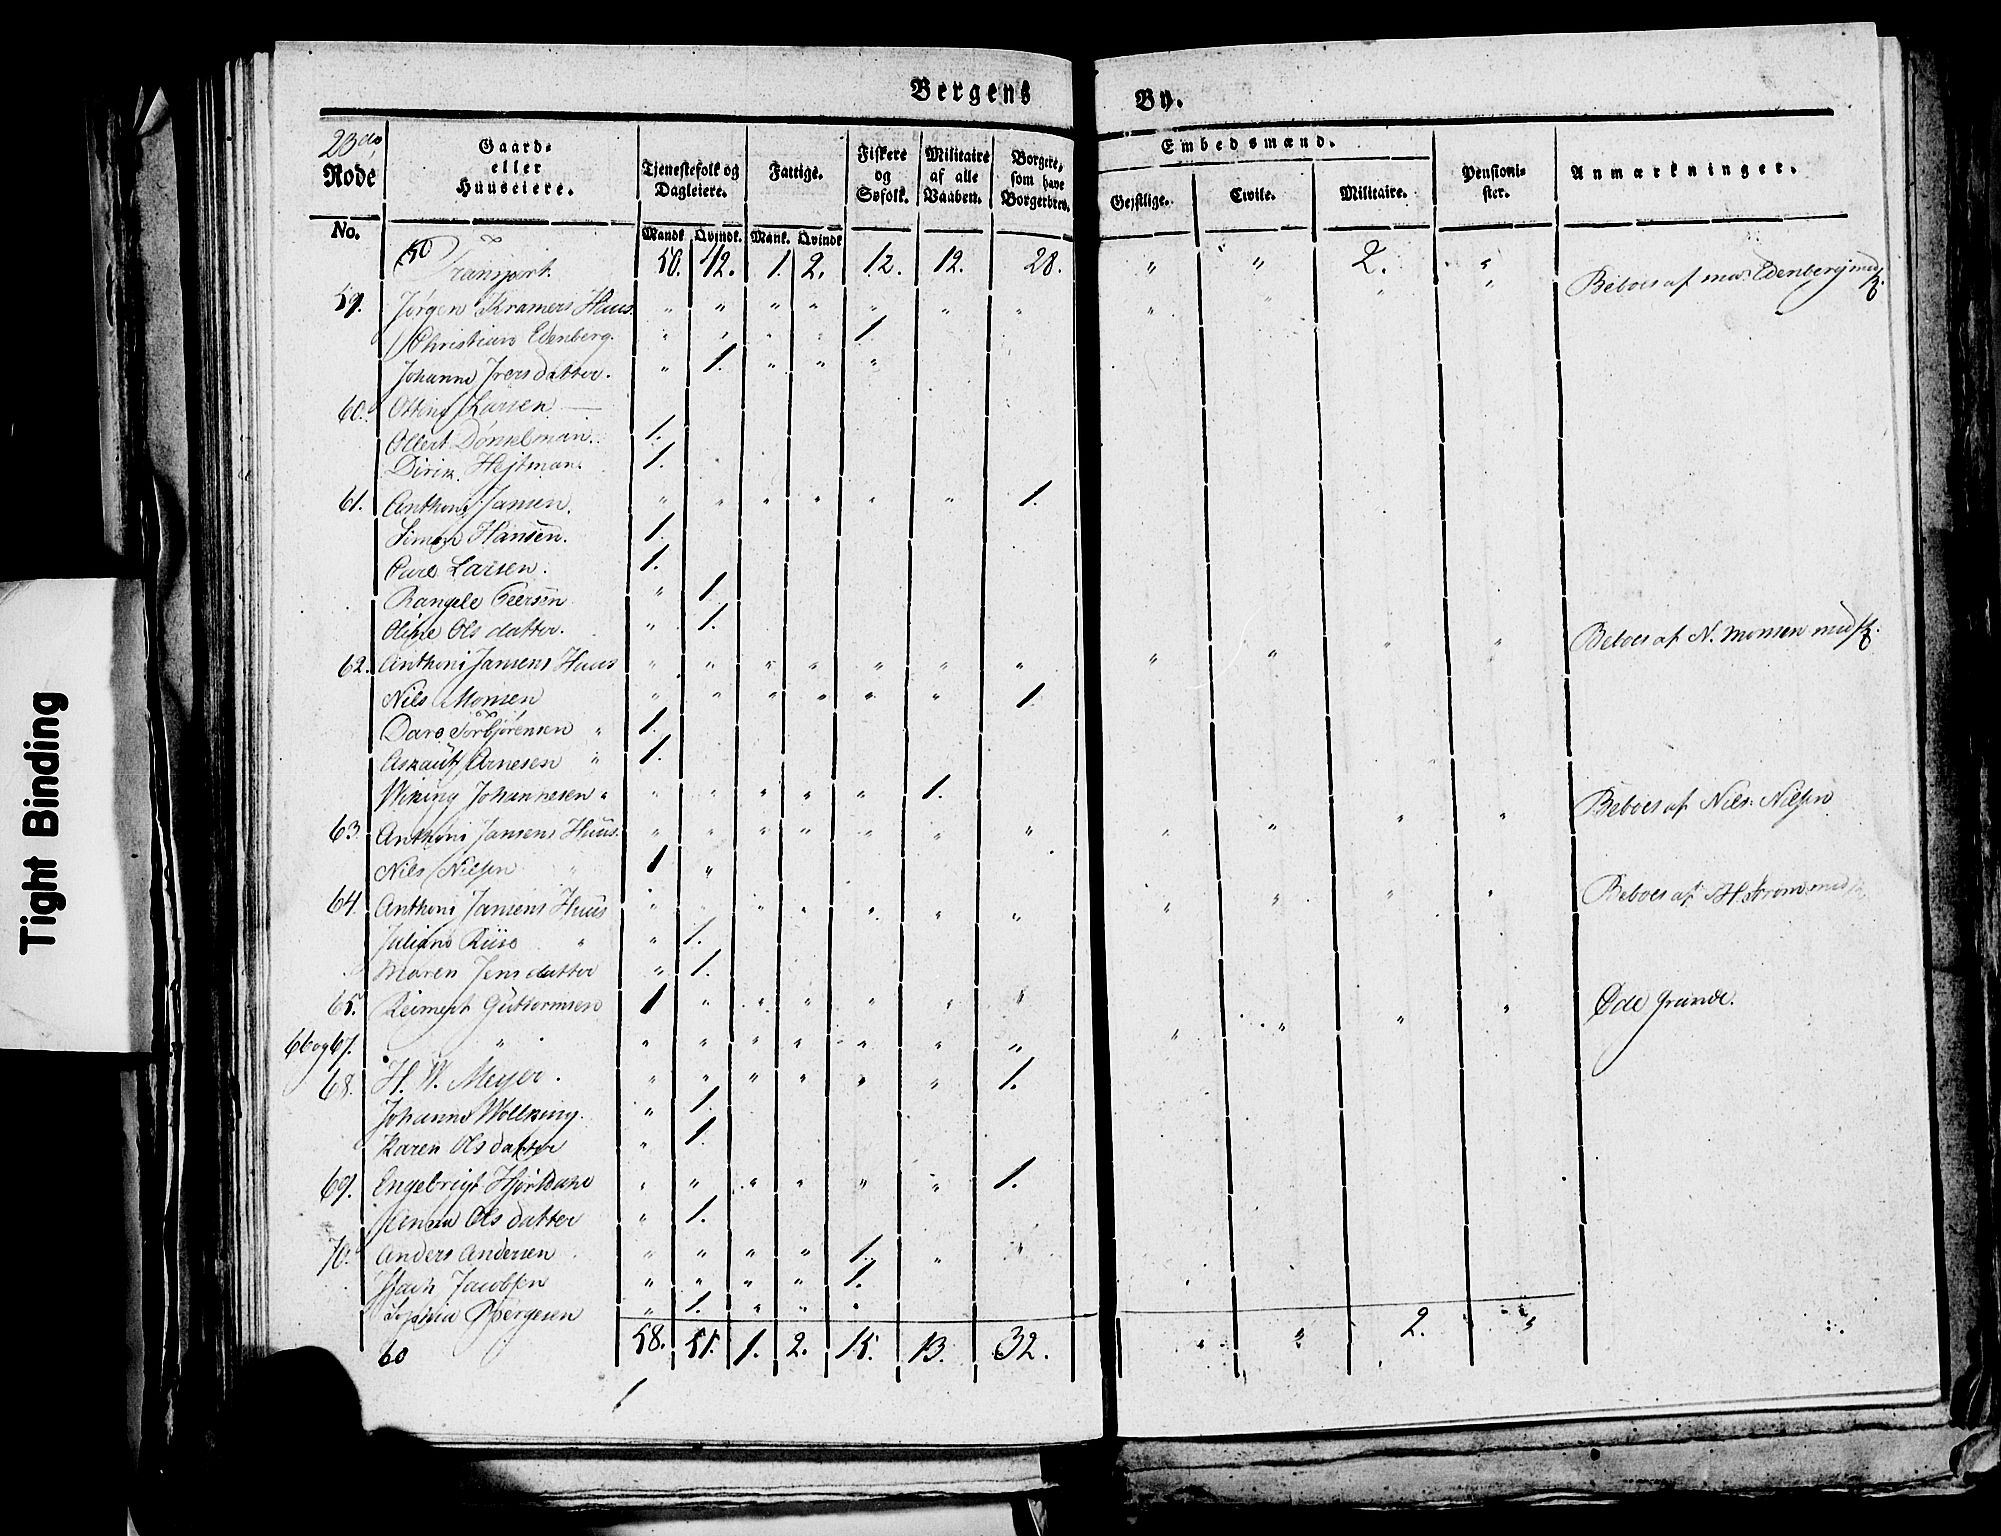 Bergens By.
23de Rode
No.
Gaard- eller Huuseiere.
Tjenestefolk og Dagleiere.
Mandk. Qvindk.
Fattige.
Mank. Qvindk.
Fiskere og Søfolk.
Militaire af alle Vaaben.
Borgere, som have Borgerbrev.
Embedsmænd.
Gejstlige. Civile. Militaire.
Pensionister.
Anmærkninger.
50
Transport. 50. 42. 1. 2. 12. 12. 28. " " 2. "
59. Jørgen Kramers Huus. " " " " " " " " " " " Beboes af Edenberg med
Christian Edenberg. " " " " 1.
Johanne Iversdatter. " 1. " " "
60. Larsen —
Ollert Dønnelman. 1.
Dirik Hejtman. 1.
61. Anthoni Jansen. " " " " " " 1.
Simon Hansen. 1.
Larsen. 1.
" 1.
Oline Olsdatter. " 1.
62. Anthoni Jansens Huus " " " " " " " " " " " Beboes af N. Monsen med
Nils Monsen " " " " " " 1.
Torbjørensen " 1.
Arnesen " 1.
Johannesen " " " " " " 1.
63. Anthoni Jansens Huus. " " " " " " " " " " " Beboes af Nils Nilsen
Nils Nilsen " 1 "
64. Anthoni Jansens Huus " " " " " " " " " " " Beboes af
Riise " " 1.
Maren Jensdatter " 1.
65. Guttormsen 1 " " " " " "
66 og 67. " " " " " " " " " " " " Øde Grunde.
68. H. W. Meyer. " " " " " " 1.
Johanne " 1.
Karen Olsdatter " 1.
69. Engebrigt " " " " " " 1.
Anna Olsdatter " 1.
70. Anders Andersen " " " " 1. " "
Jacobsen " " " " 1.
" 1. " " "
60 58. 51. 1. 2. 15. 13. 32. " " 2. "
Tight Binding